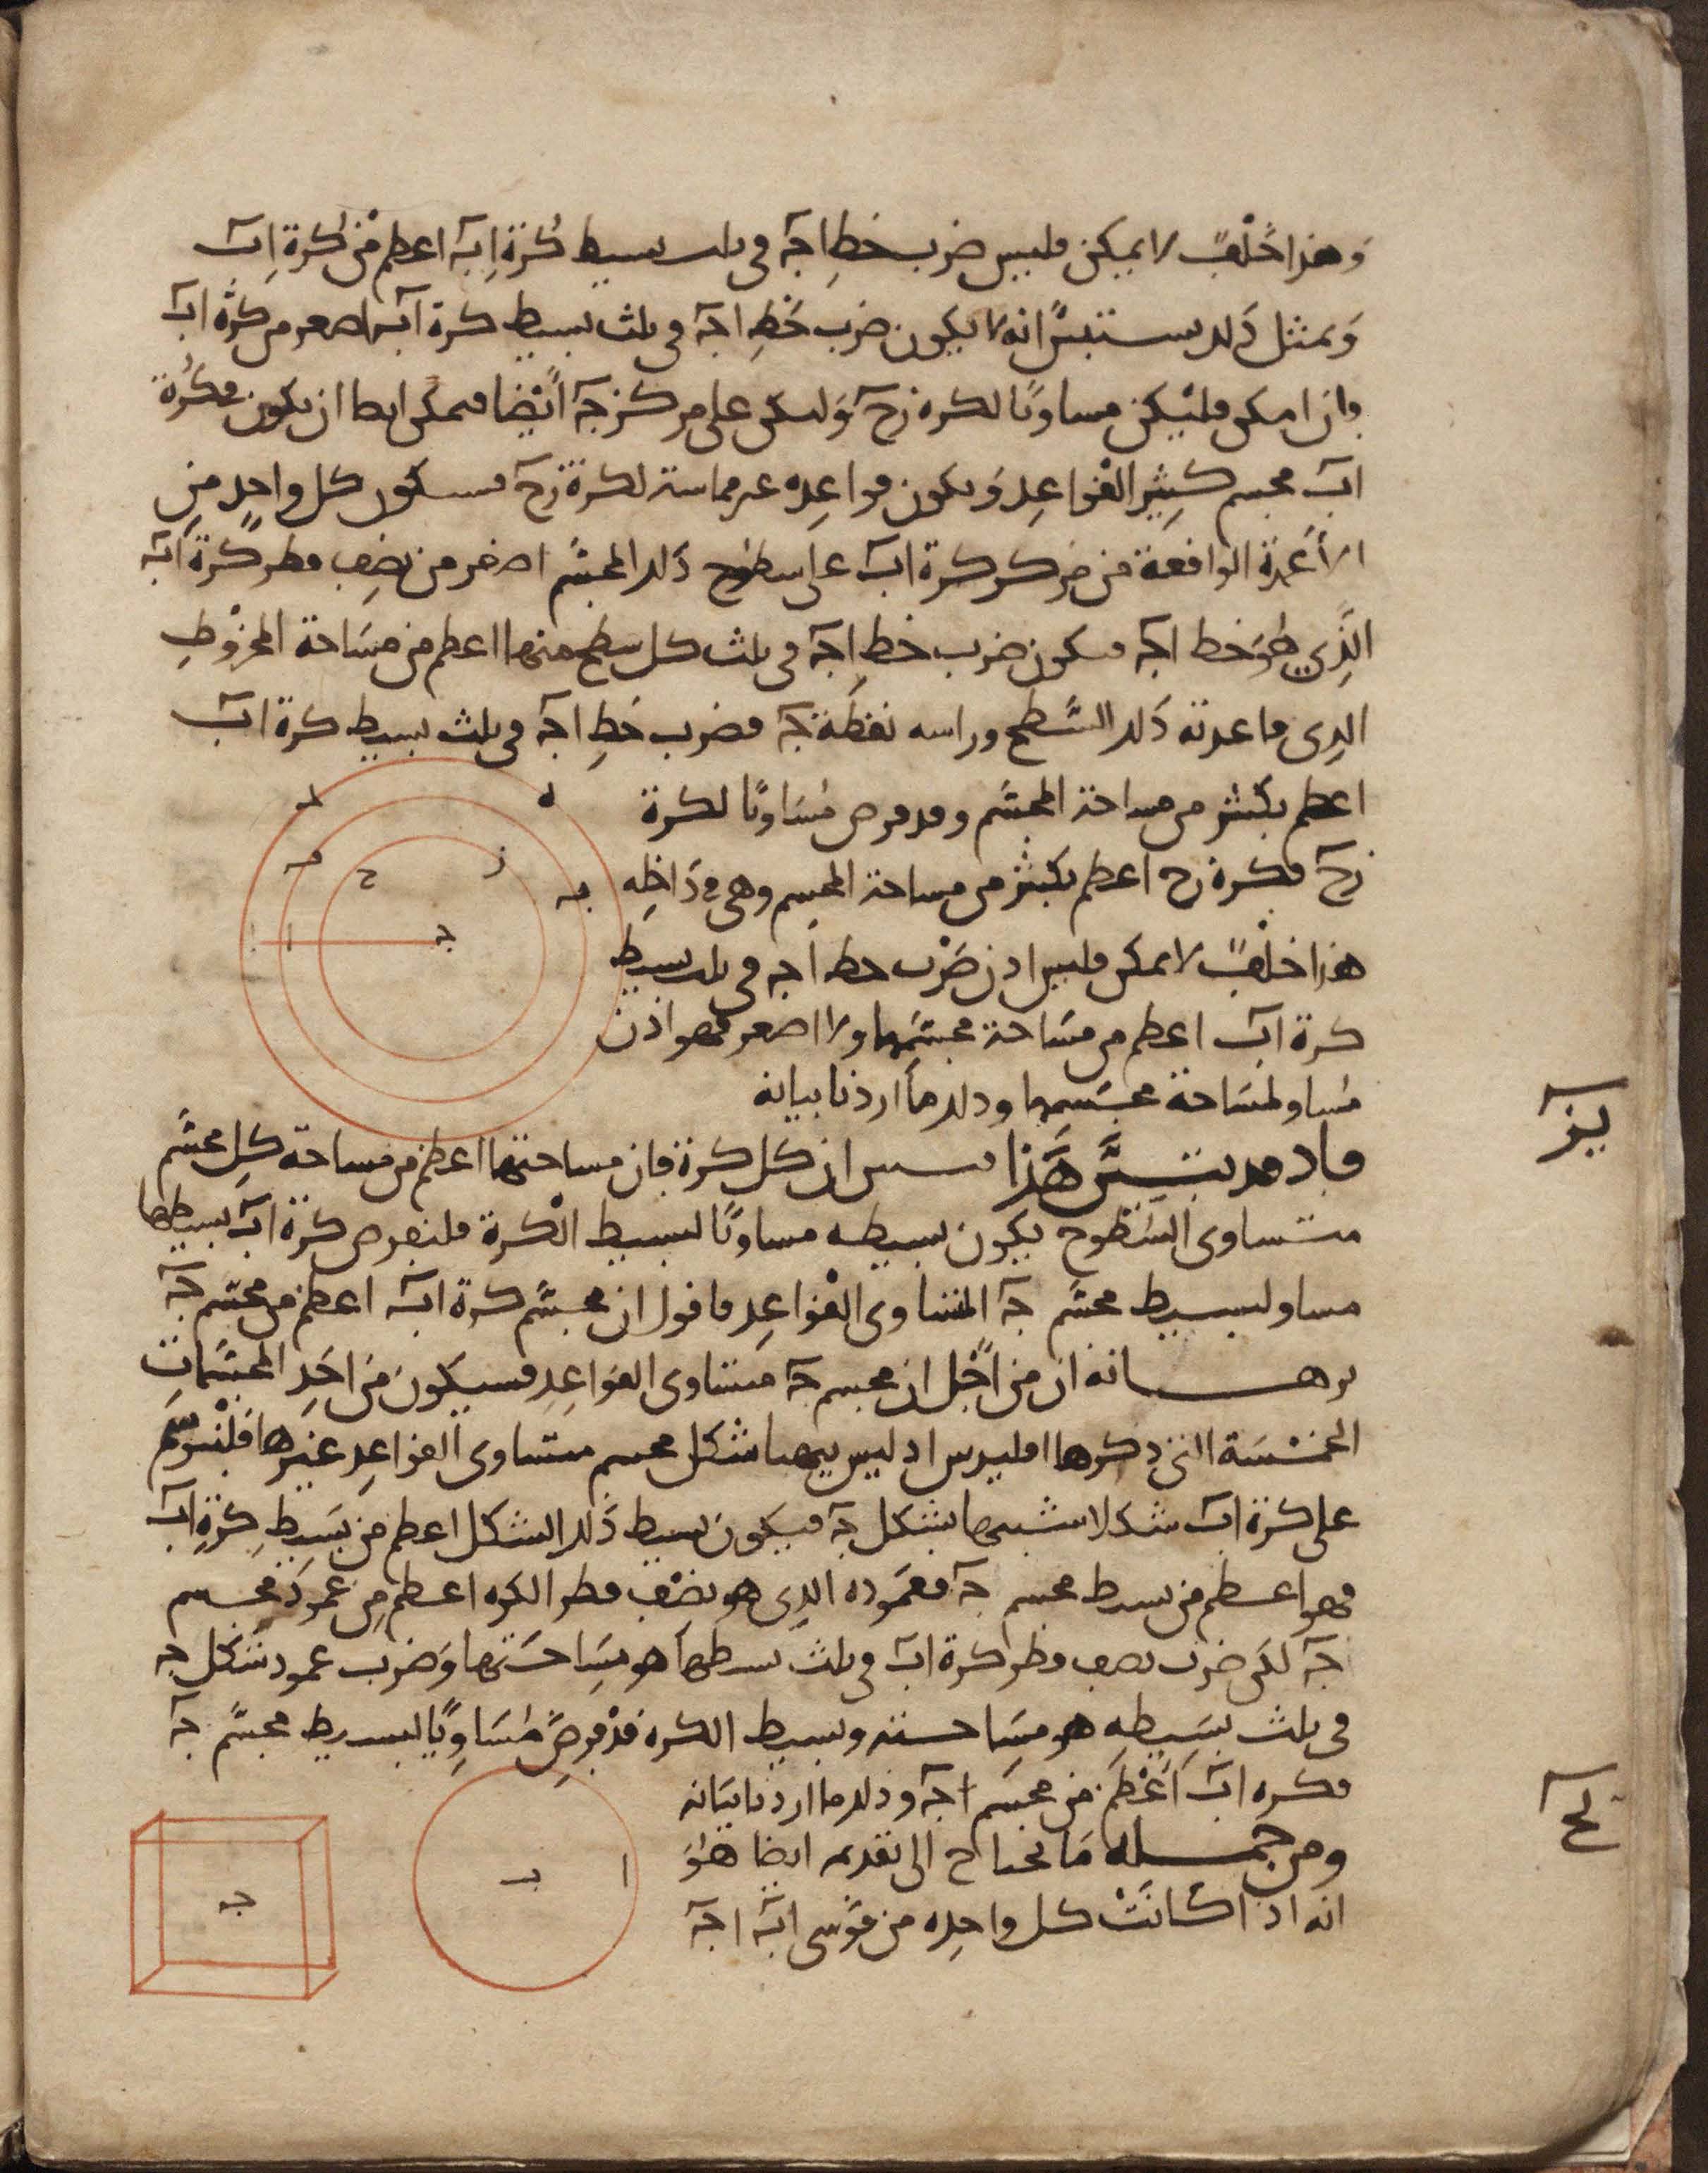 وهذا خلف لا يمكن فليس ضرب خط اجـ في ثلث بسيط كرة اب اعظم من كرة اب
وبمثل ذلك يستبين انه لا يكون ضرب خط اجـ في ثلث بسيط كرة اب اصغر من كرة اب
وان امكن فليكن مساويا لكرة زح وليكن على مركز جـ ايضا فيمكن ايضا ان يكون في كرة
اب مجسم كثير القواعد ويكون قواعده غير مماسة لكرة زح فسيكون كل واحد من
الاعمدة الواقعة من مركز كرة اب على سطوح ذلك المجسم اصغر من نصف قطر كرة اب
الذي هو خط اجـ فيكون ضرب خط اجـ في ثلث كل سطح منها اعظم من مساحة المخروط
الذي قاعدته ذلك السطح وراسه نقطة جـ فضرب خط اجـ في ثلث بسيط كرة اب
اعظم بكثير من مساحة المجسم وقد فرض مساويا لكرة
زح فكرة زح اعظم بكثير من مساحة المجسم وهي في داخله
هذا خلف لا يمكن فليس اذن ضرب خط اجـ في ثلث بسيط
كرة اب اعظم من مساحة مجسمها ولا اصغر فهو اذن
مساو لمساحة مجسمها وذلك ما اردنا بيانه
يز
فاذ قد تبين هذا فنبين ان كل كرة فان مساحتها اعظم من مساحة كل مجسم
متساوي السطوح يكون بسيطه مساويا لبسيط الكرة فلنفرض كرة اب بسيطها
مساو لبسيط مجسم جـ المتساوي القواعد فاقول ان مجسم كرة اب اعظم من مجسم جـ
برهانه ان من اجل ان مجسم جـ متساوي القواعد فسيكون من احد المجسمات
الخمسة التي ذكرها اقليدس اذ ليس يتهيا شكل مجسم متساوي القواعد غيرها فلنتوهم
على كرة اب شكلا شبيها بشكل جـ فيكون بسيط ذلك الشكل اعظم من بسيط كرة اب
فهو اعظم من بسيط مجسم جـ فعموده الذي هو نصف قطر الكره اعظم من عمود مجسم
جـ لكن ضرب نصف قطر كرة اب في ثلث بسيطها هو مساحتها وضرب عمود شكل جـ
في ثلث بسيطه هو مساحته وبسيط الكره قد فرض مساويا لبسيط مجسم جـ
فكره اب اعظم من مجسم اجـ وذلك ما اردنا بيانه
يح
ومن جملة ما يحتاج الى تقديمه ايضا هو
انه اذا كانت كل واحده من قوسي اب اجـ
ه
ز
ح
بـ
ا
جـ
ا
بـ
جـ